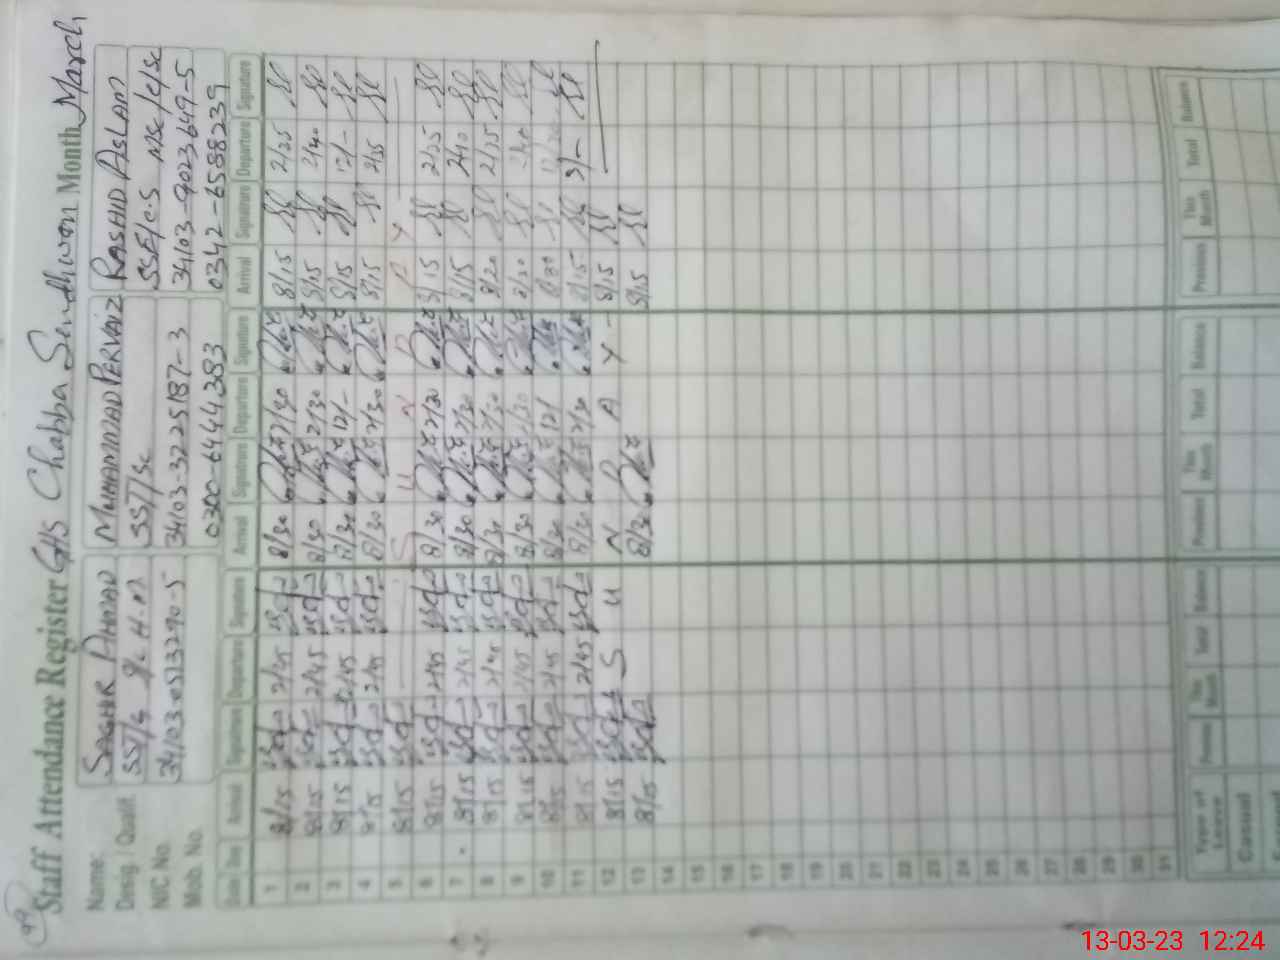 Staff Attendance Register GHS Chabba Sindhwan Month March
Name: SAGHIR AHMAD MUHAMMAD PERVAIZ RASHID ASLAM
Desig. / Qualif. SST/Sc
NIC No. 34103-3225187-3 34103-9023649-5
Mob. No. 0300-6444383 0342-6588239
Date Day Arrival Signature Departure Signature Arrival Signature Departure Signature Arrival Signature Departure Signature
1 8/15 2/45 8/30 2/30 8/15 2/35
2 8/15 2/45 8/30 2/30 8/15 2/40
3 8/15 12/45 8/30 12/- 8/15 12/-
4 8/15 2/45 8/30 2/30 8/15 2/35
5 8/15 S U N D A Y
6 8/15 2/45 8/30 2/30 8/15 2/35
7 8/15 2/45 8/30 2/30 8/15 2/40
8 8/15 2/45 8/30 2/30 8/20 2/35
9 8/15 2/45 8/30 2/30 8/20 2/40
10 8/15 2/45 8/30 12/ 8/20
11 8/15 2/45 8/30 2/30 8/15 3/-
12 8/15 S U N D A Y 8/15
13 8/15 8/30 8/15
14
15
16
17
18
19
20
21
22
23
24
25
26
27
28
29
30
31
Type of Leave Previous This Month Total Balance Previous This Month Total Balance Previous This Month Total Balance
Casual
13-03-23 12:24